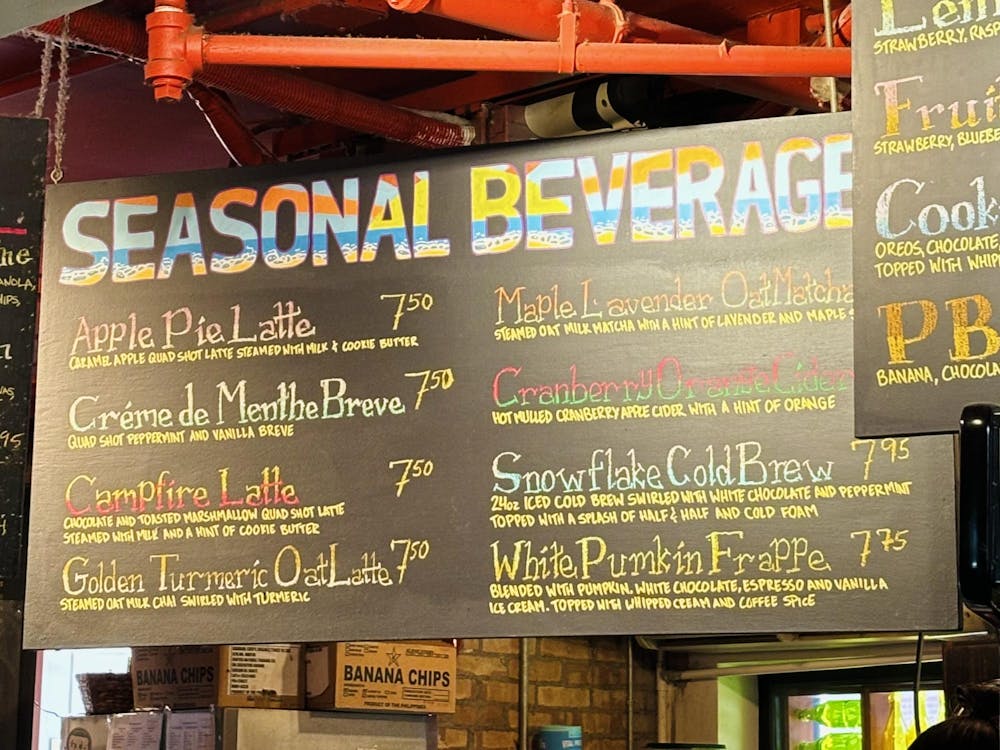 SEASONAL BEVERAGE
Apple Pie Latte 7.50
CARAMEL APPLE QUAD SHOT LATTE STEAMED WITH MILK & COOKIE BUTTER
Créme de Menthe Breve 7.50
QUAD SHOT PEPPERMINT AND VANILLA BREVE
Campfire Latte 7.50
CHOCOLATE AND TOASTED MARSHMALLOW QUAD SHOT LATTE
STEAMED WITH MILK AND A HINT OF COOKIE BUTTER
Golden Turmeric Oat Latte 7.50
STEAMED OAT MILK CHAI SWIRLED WITH TURMERIC
Maple Lavender Oat Matcha
STEAMED OAT MILK MATCHA WITH A HINT OF LAVENDER AND MAPLE
Cranberry Orange Cider
HOT MULLED CRANBERRY APPLE CIDER WITH A HINT OF ORANGE
Snowflake Cold Brew 7.95
24oz ICED COLD BREW SWIRLED WITH WHITE CHOCOLATE AND PEPPERMINT
TOPPED WITH A SPLASH OF HALF & HALF AND COLD FOAM
White Pumkin Frappe 7.75
BLENDED WITH PUMPKIN, WHITE CHOCOLATE, ESPRESSO AND VANILLA
ICE CREAM. TOPPED WITH WHIPPED CREAM AND COFFEE SPICE
STRAWBERRY, RASP
Frui
STRAWBERRY, BLUEBE
Cook
OREOS, CHOCOLATE,
TOPPED WITH WHIP
PB
BANANA, CHOCOLA
BANANA CHIPS
BANANA CHIPS
PRODUCT OF THE PHILIPPINES